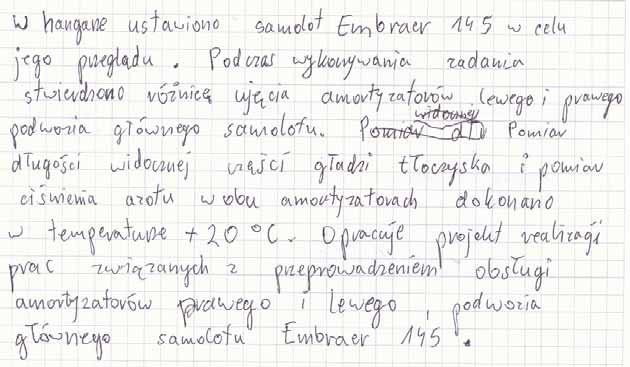 W hangarze ustawiono samolot Embraer 145 w celu
jego przeglądu. Podczas wykonywania zadania
stwierdzono różnicę ujęcia amortyzatorów lewego i prawego
widocznej
podwozia głównego samolotu. Pomiar dł Pomiar
długości widocznej części gładzi tłoczyska i pomiar
ciśnienia azotu w obu amortyzatorach dokonano
w temperaturze +20 °C. Opracuję projekt realizacji
prac związanych z przeprowadzeniem obsługi
amortyzatorów prawego i lewego podwozia
głównego samolotu Embraer 145.